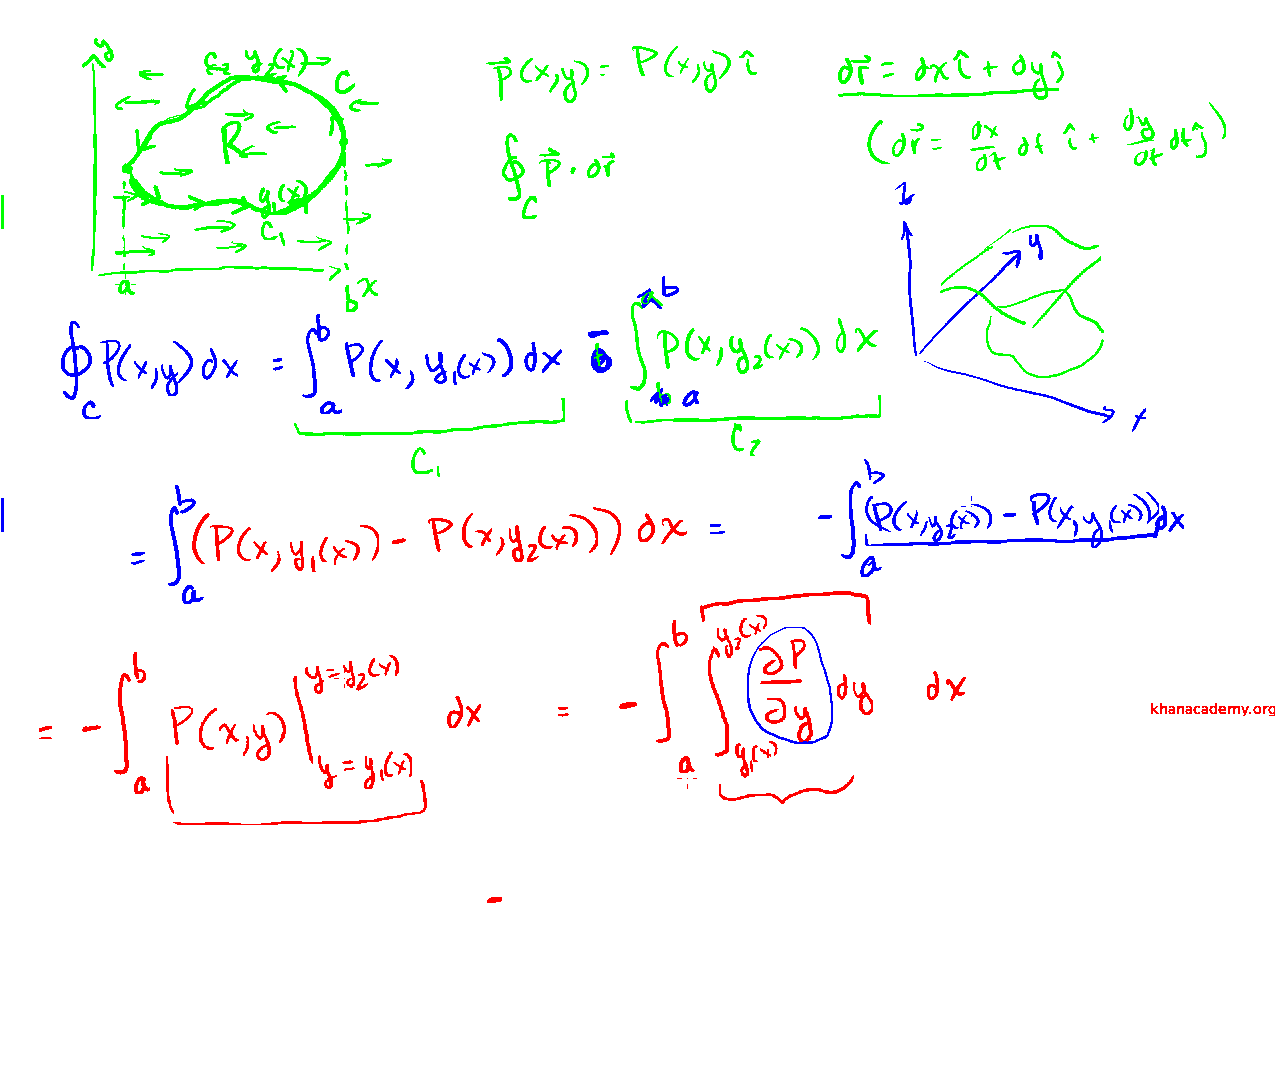 y
C₂ y₂(x)
C
R
y₁(x)
C₁
a
b x
p⃗(x,y) = P(x,y) î
∮_C p⃗ · dr⃗
dr⃗ = dx î + dy ĵ
(dr⃗ = dx/dt dt î + dy/dt dt ĵ)
z
y
x
∮_C P(x,y) dx = ∫_a^b P(x, y₁(x)) dx − ∫_a^b P(x, y₂(x)) dx
C₁ C₂
= ∫_a^b (P(x, y₁(x)) − P(x, y₂(x))) dx = −∫_a^b (P(x, y₂(x)) − P(x, y₁(x))) dx
= −∫_a^b P(x,y) |_{y = y₁(x)}^{y = y₂(x)} dx = −∫_a^b ∫_{y₁(x)}^{y₂(x)} ∂P/∂y dy dx
khanacademy.org
−